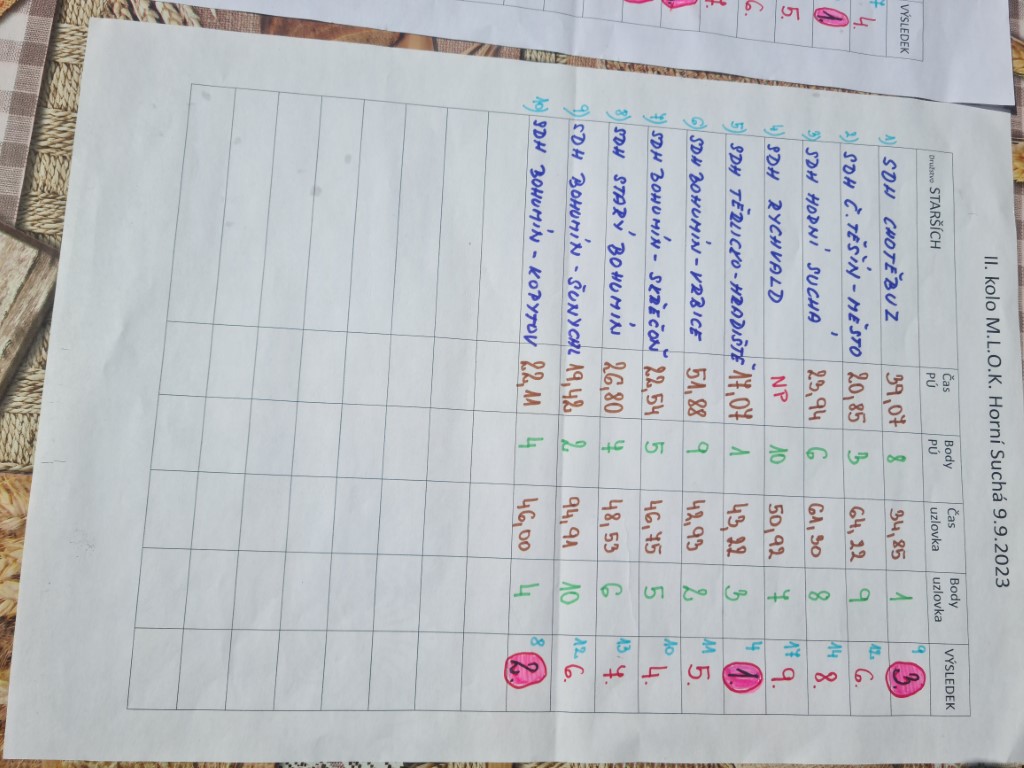 VÝSLEDEK
7 4.
1
5.
6.
7
II. kolo M.L.O.K. Horní Suchá 9.9.2023
Družstvo STARŠÍCH Čas PÚ Body PÚ Čas uzlovka Body uzlovka VÝSLEDEK
1) SDH CHOTĚBUZ 39,07 8 34,85 1 9 3.
2) SDH Č. TĚŠÍN - MĚSTO 20,85 3 64,22 9 12. 6.
3) SDH HORNÍ SUCHÁ 23,94 6 61,30 8 14 8.
4) SDH RYCHVALD NP 10 50,92 7 17 9.
5) SDH TĚRLICKO - HRADIŠTĚ 17,07 1 43,22 3 4 1
6) SDH BOHUMÍN - VRBICE 51,88 9 42,93 2 11 5.
7) SDH BOHUMÍN - SKŘEČOŇ 22,54 5 46,75 5 10 4.
8) SDH STARÝ BOHUMÍN 26,80 7 48,53 6 13. 7.
9) SDH BOHUMÍN - ŠUNYCHL 19,42 2 94,91 10 12. 6.
10) SDH BOHUMÍN - KOPYTOV 22,11 4 46,00 4 8 2.